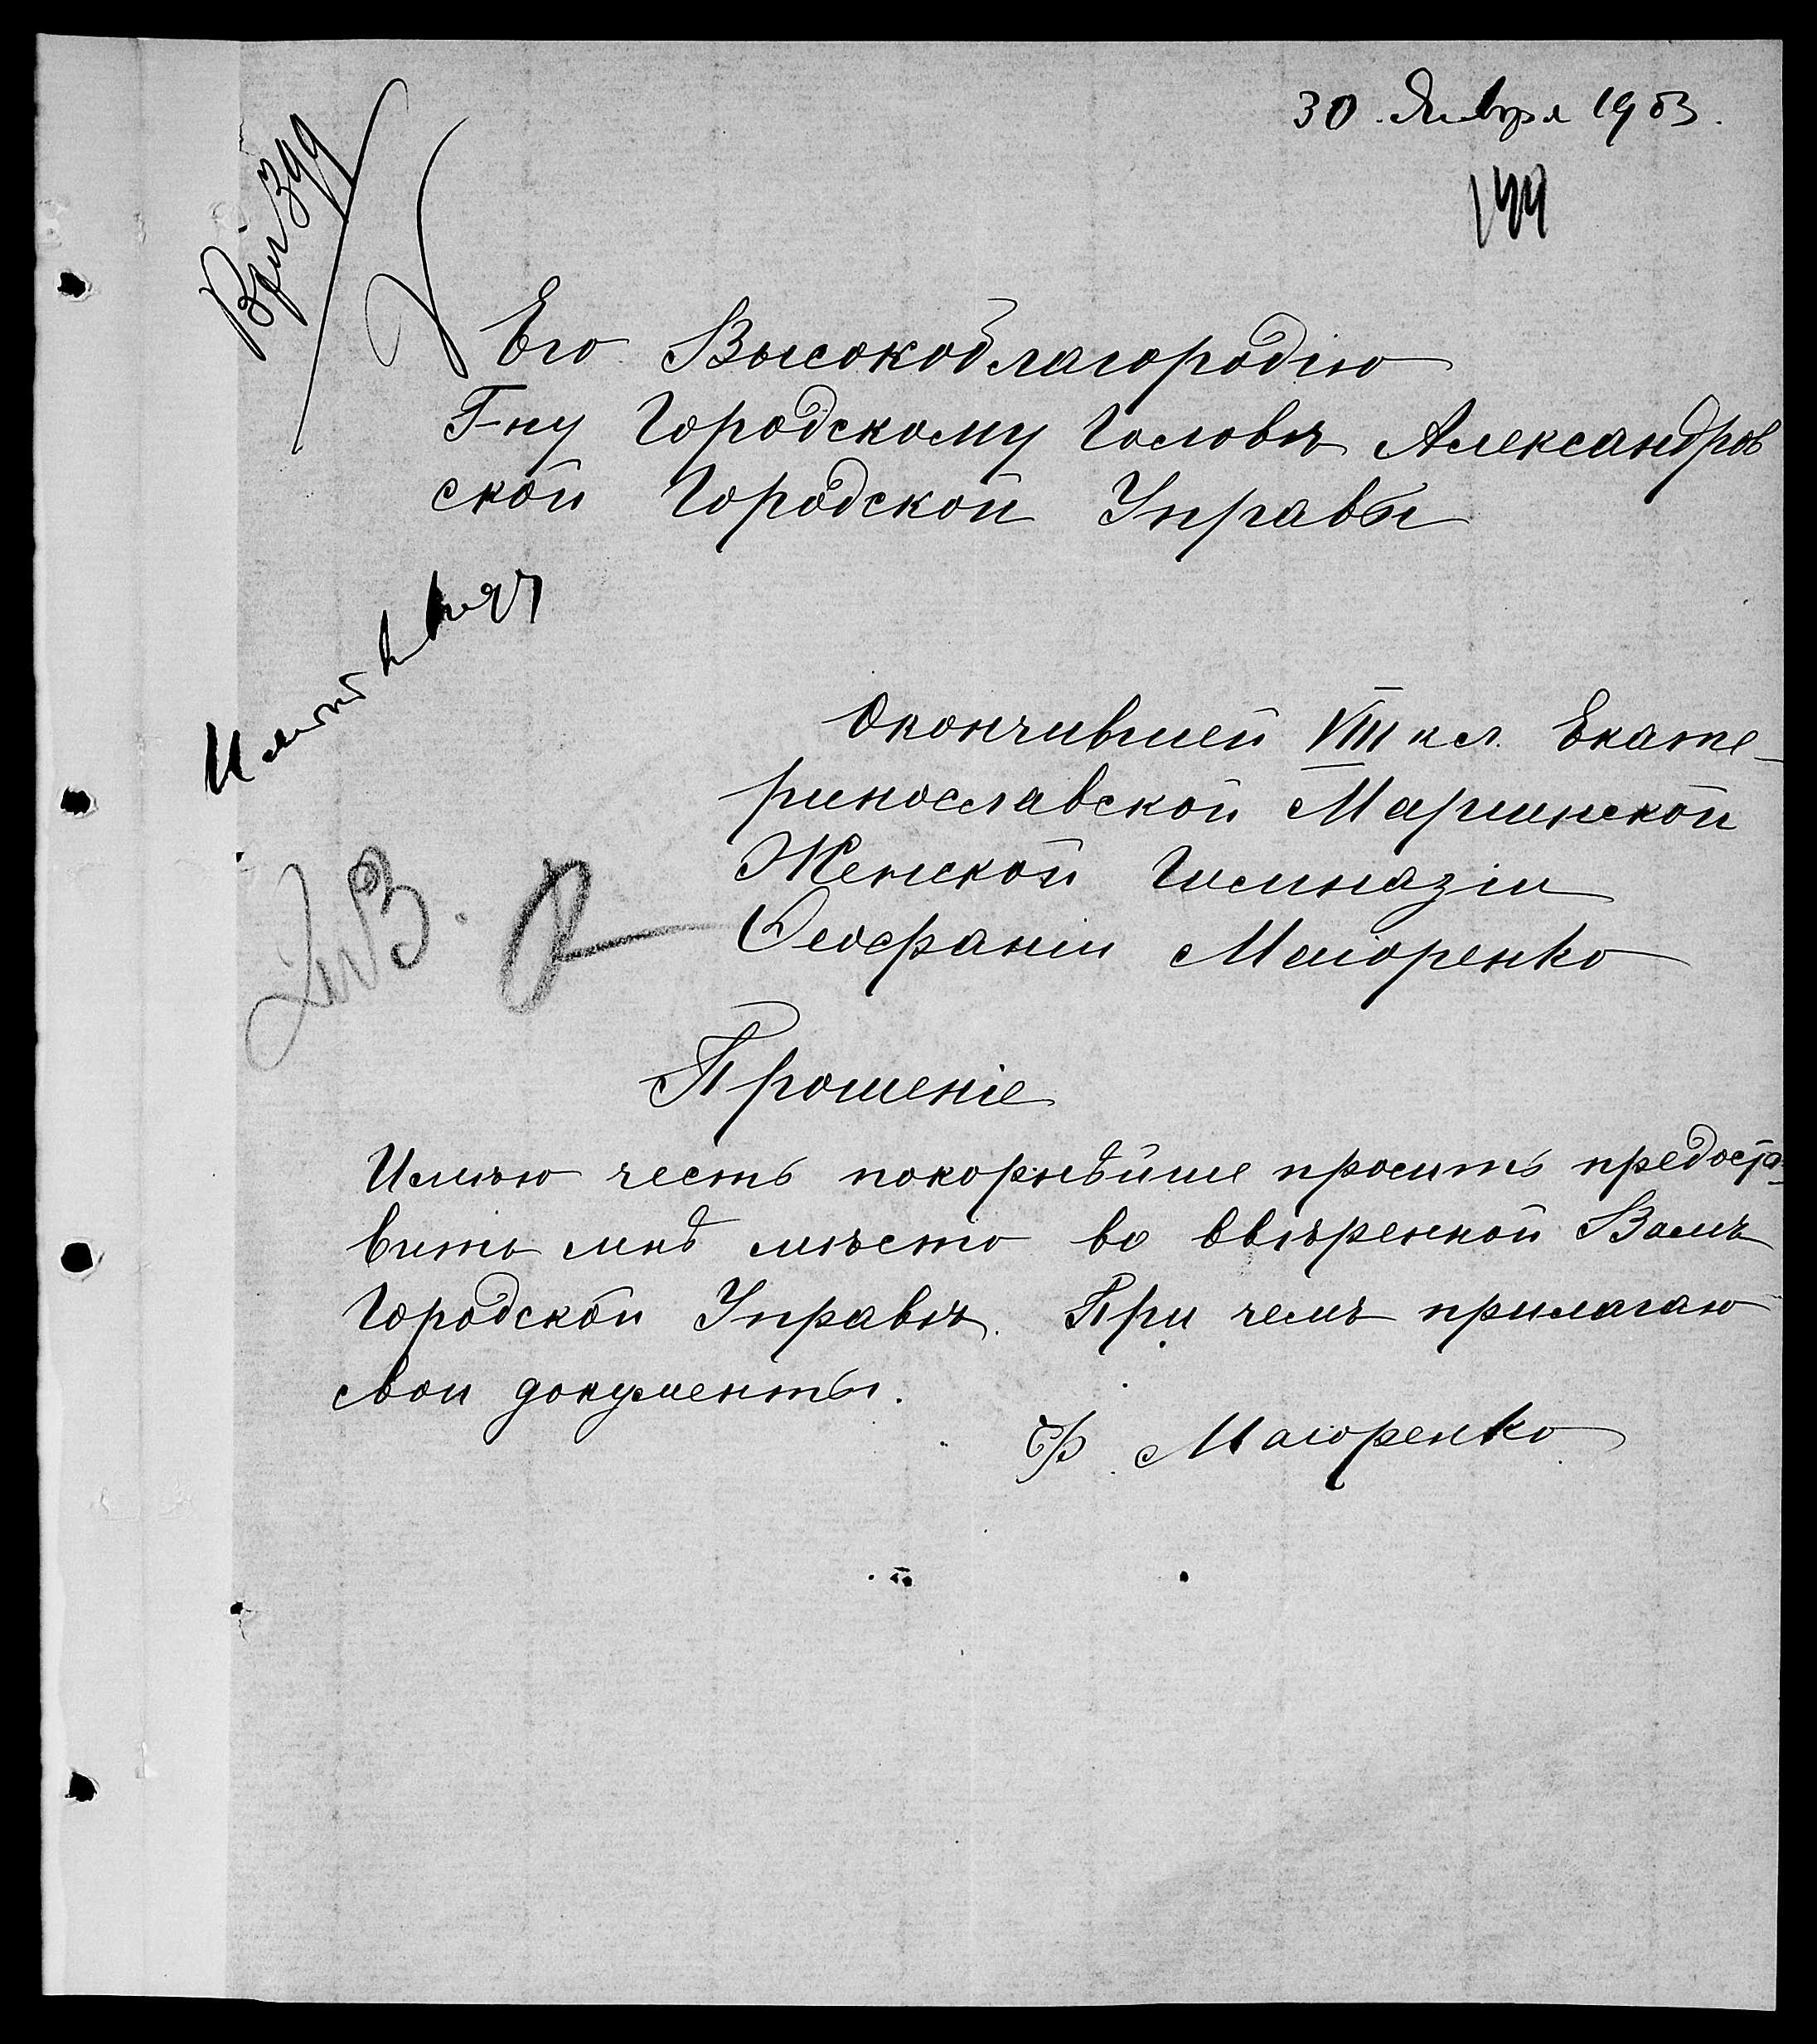 30 Января 1903.
144
Его Высокоблагородію
Г-ну Городскому Головѣ Александров
ской Городской Управы
Окончившей VIII кл. Екате-
ринославской Маріинской
Женской Гимназіи
Ѳеофаніи Маіоренко
Прошеніе
Имѣю честь покорнѣйше просить предоста-
вить мнѣ мѣсто во ввѣренной Вамъ
Городской Управѣ. При чемъ прилагаю
свои документы.
Ѳ. Маіоренко